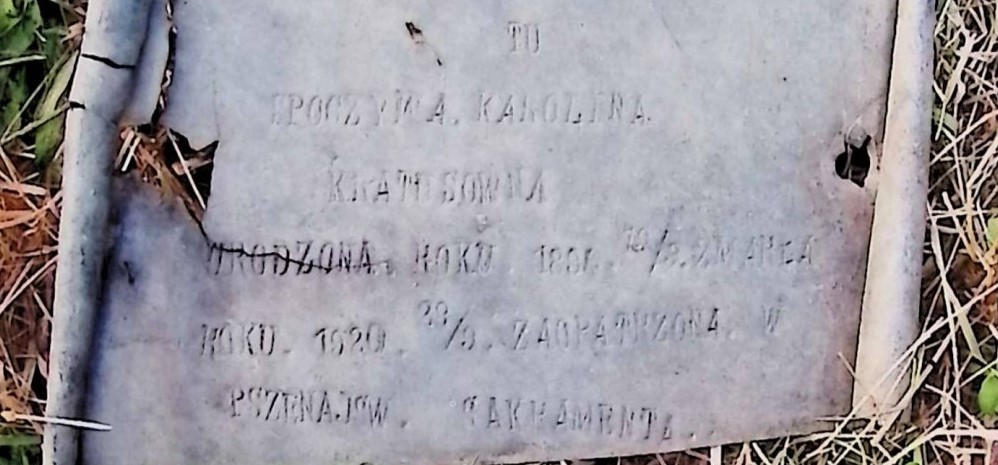 TU
SPOCZYWA. KAROLINA
URODZONA. ROKU. 10/8. ZMARŁA
ROKU. 1920. 29/9. ZAOPATRZONA. W
PSZENAJSW. SAKRAMENTA.